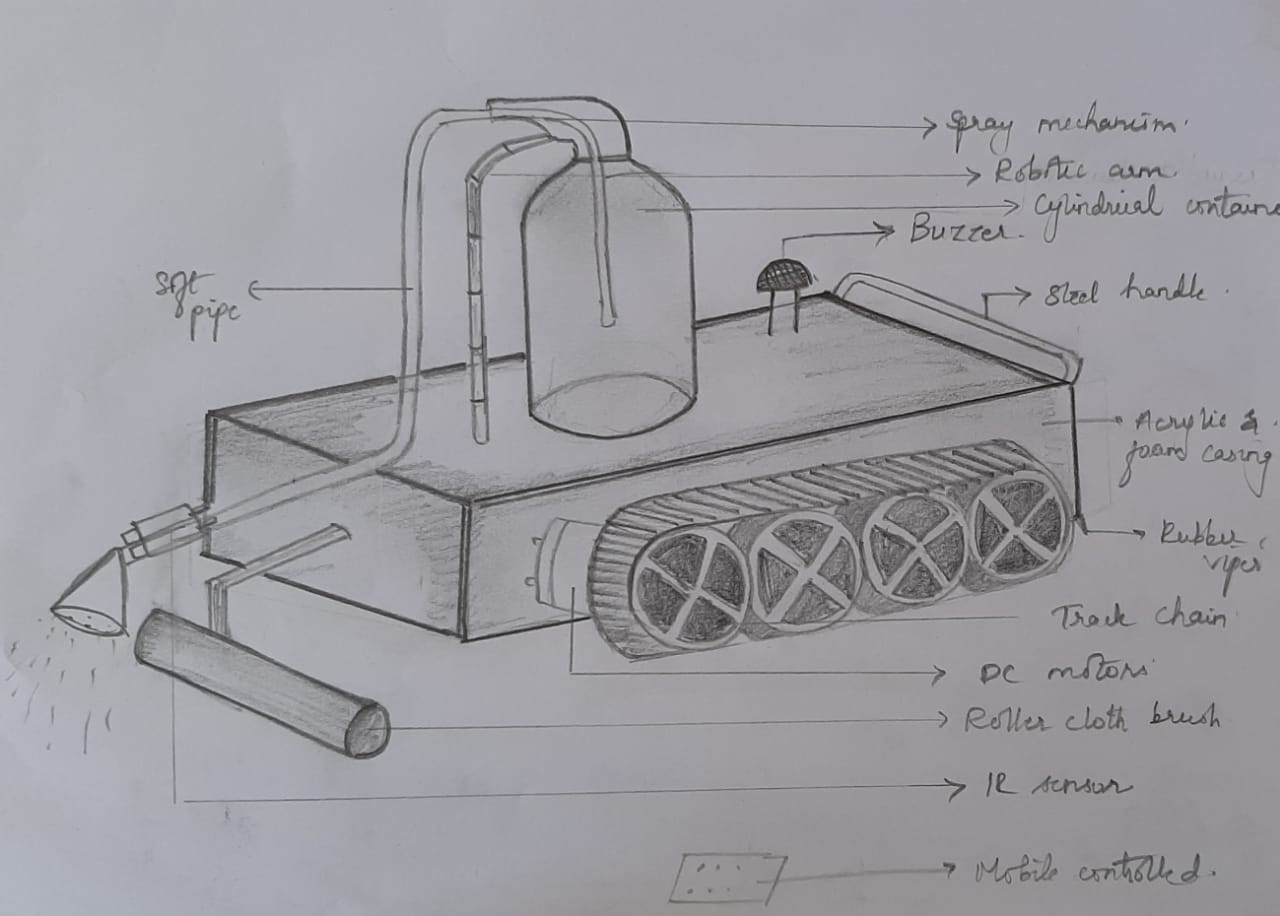 Spray mechanism.
Robotic arm
Cylindrical container
Buzzer.
Soft
pipe
Steel handle.
Acrylic &
foam casing
Rubber
viper
Track chain
DC motors
Roller cloth brush
IR sensor
Mobile controlled.